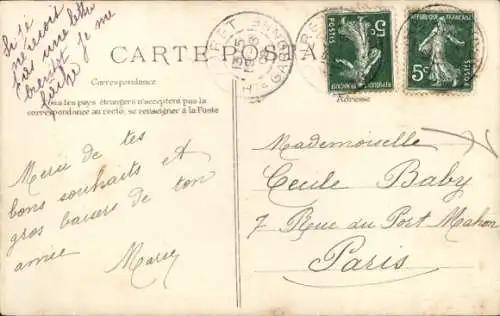 Si je
ne reçois
pas une lettre
bientôt je me
fâche
CARTE POSTALE
Correspondance
Tous les pays étrangers n'acceptent pas la
correspondance au recto, se renseigner à la Poste
Adresse
Merci de tes
bons souhaits et
gros baisers de ton
amie
5c
POSTES
REPUBLIQUE FRANÇAISE
5c
POSTES
REPUBLIQUE FRANÇAISE
Mademoiselle
Baby
7 Rue du Port Mahon
Paris